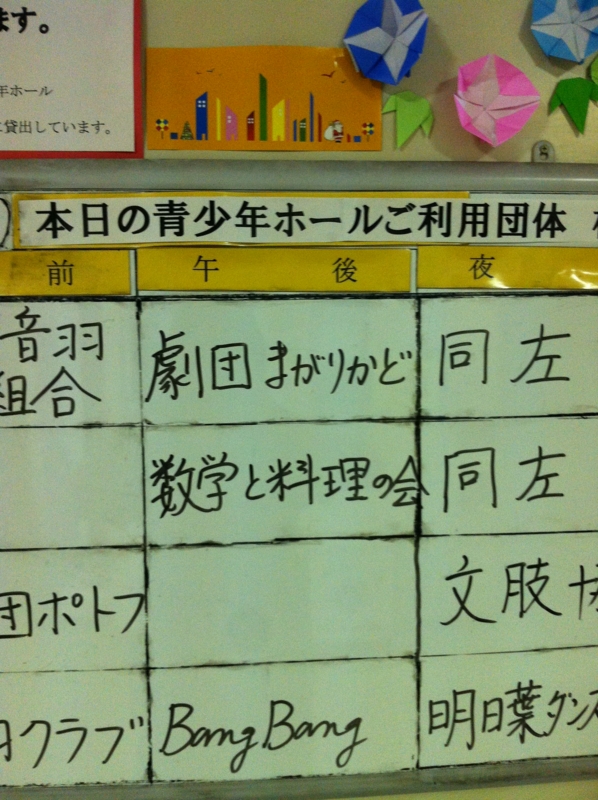 ます。
年ホール
に貸出しています。
8
本日の青少年ホールご利用団体
前 午 後 夜
音羽
組合
劇団 まがりかど
同 左
数学と料理の会
同 左
団ポトフ
文 肢 協
クラブ
Bang Bang
明日葉ダンス